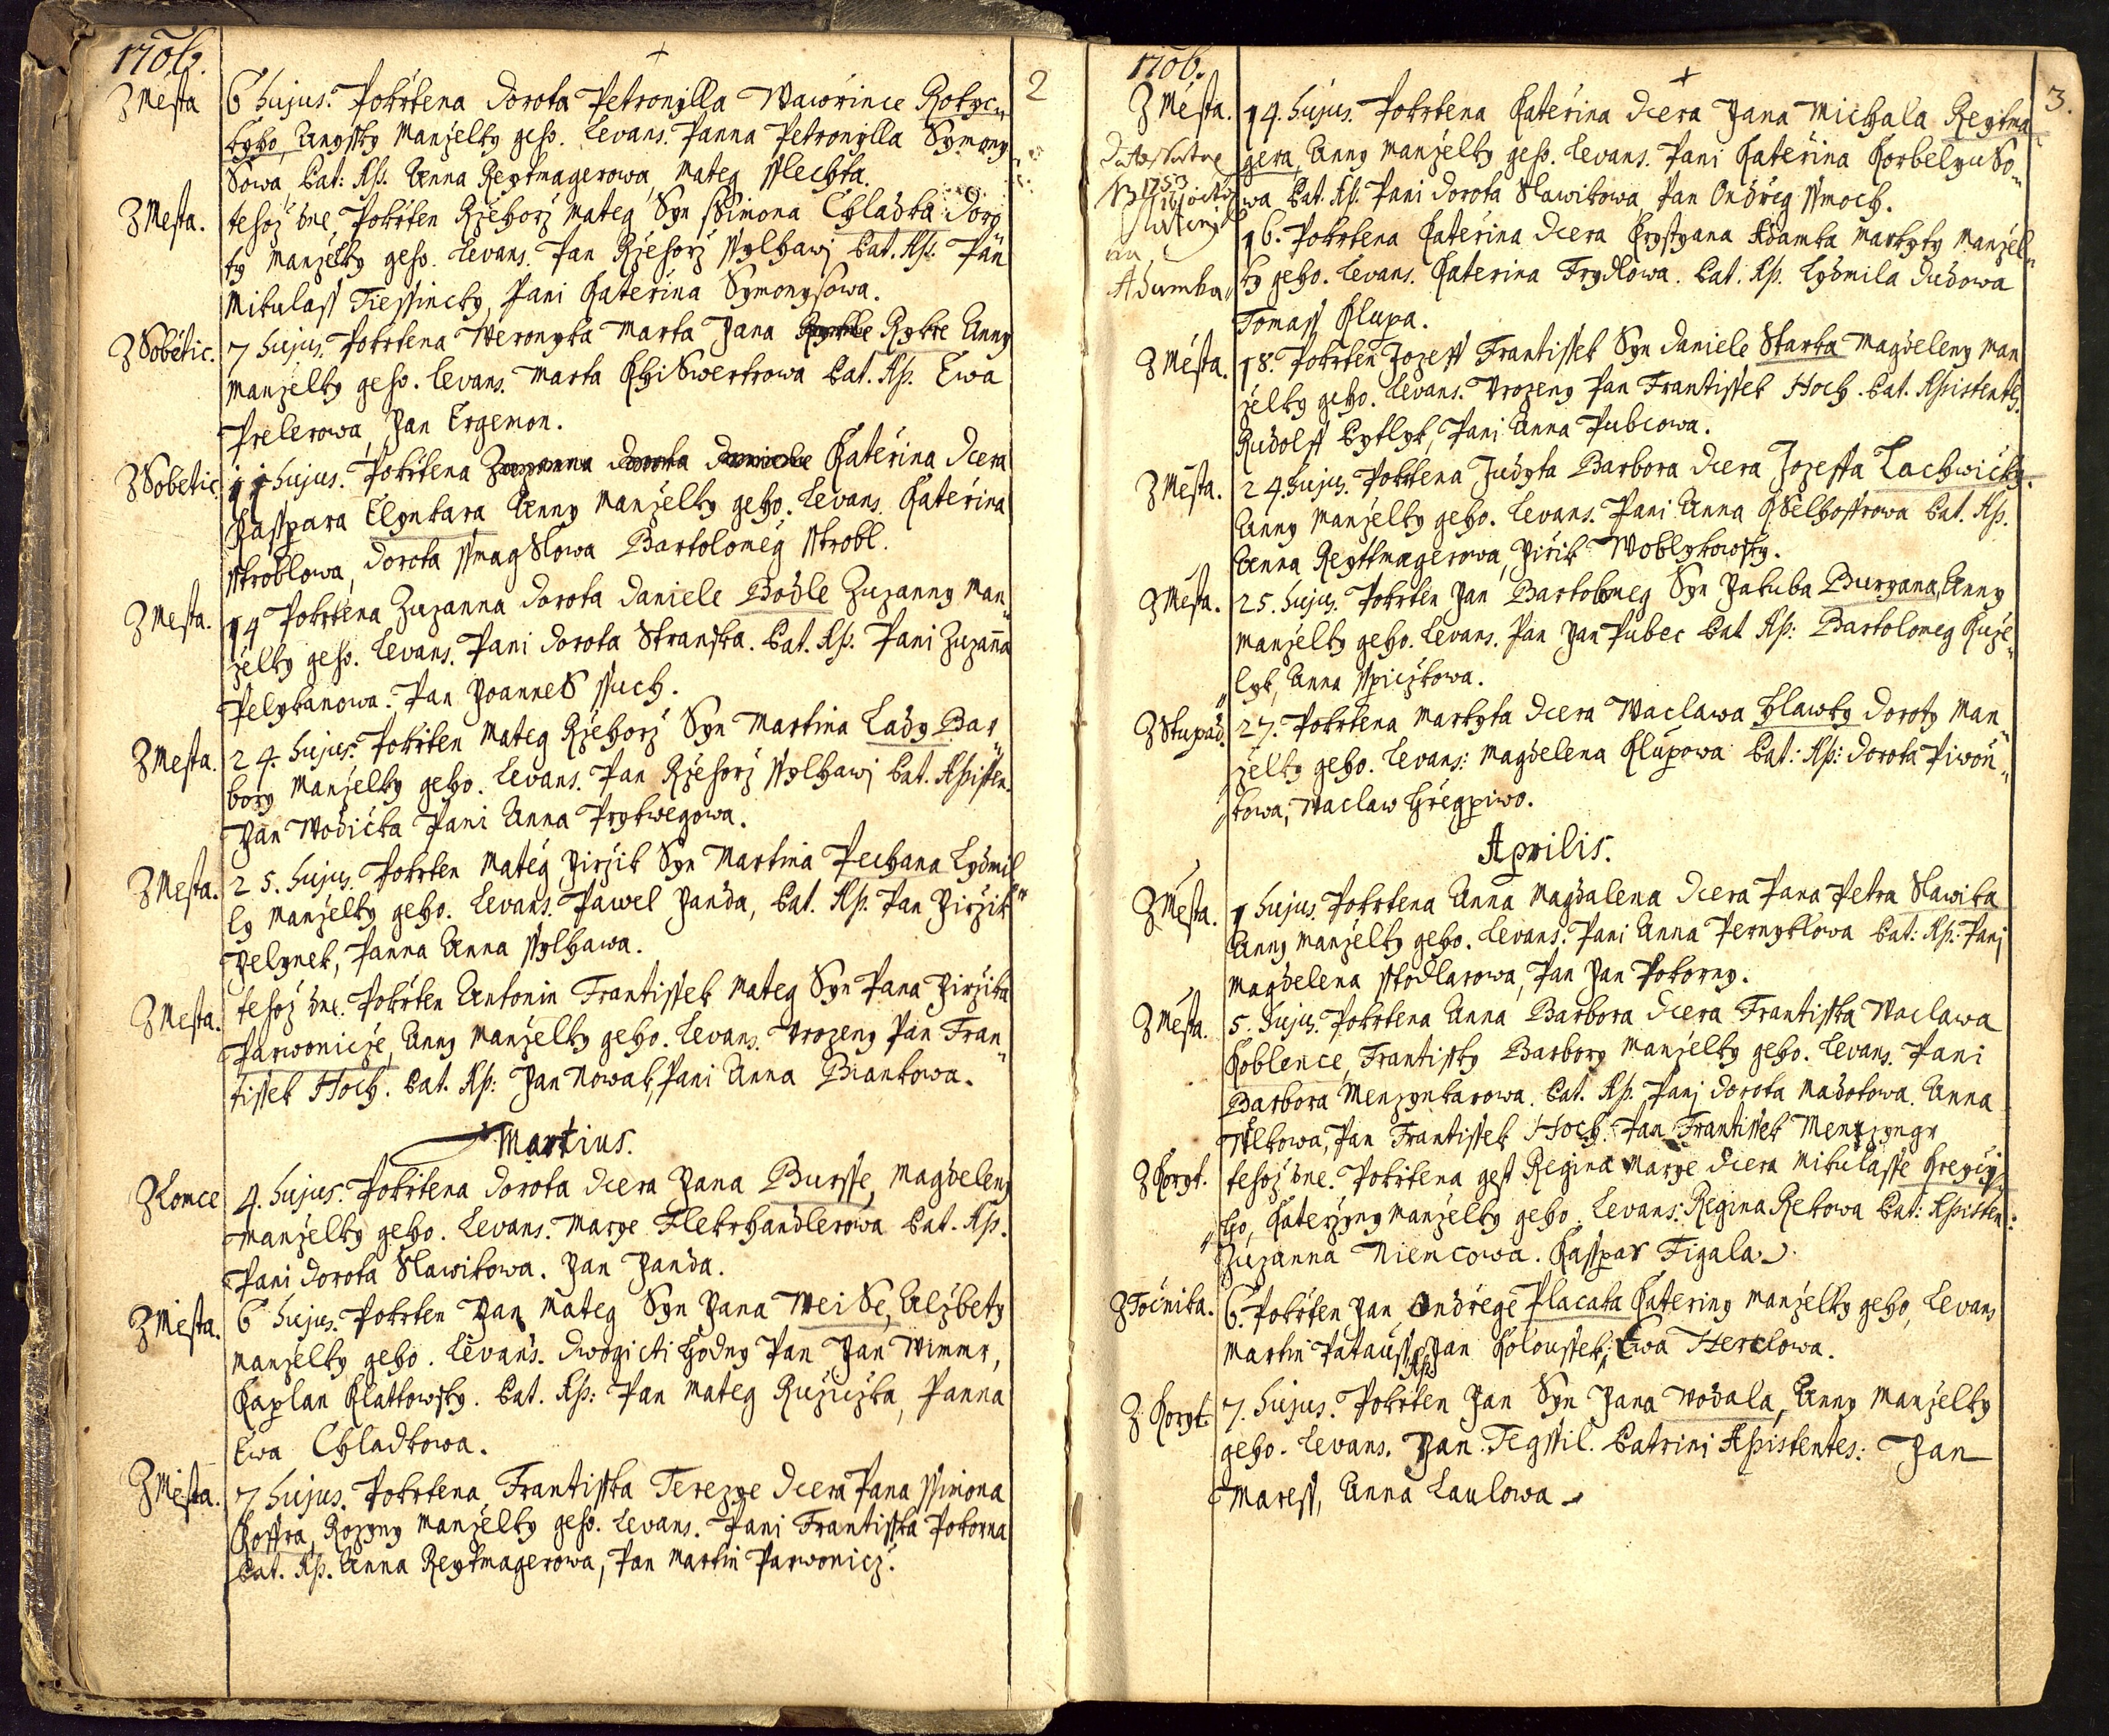 1706.
2
Z Mesta 6 hujus. Pokrtena Dorota Petronylla Wawrince Rokyc„
kyho, Anyssky Manzelky geho. Levans. Panna Petronylla Symony„
Sowa, Pat: Ass. Anna Reytmagerowa, Mateg Sslechta.
Z Mesta. tehoz dne, Pokrten Rzehorz Mateg Syn Ssimona Chladka Doro
ty Manzelky geho. Levans. Pan Rzehorz Ssylhawj Pat. Ass. Pan
Mikulass Tiessincky, Pani Katerina Symonysowa.
Z Sobětic. 7 hujus. Pokrtena Weronyka Marta Jana Rykre Anny
Manzelky geho. levans. Marta Pat. Ass. Ewa
Prelerowa, Jan Ergemon.
Z Sobetic 11 hujus. Pokrtena Zuzanna Dorota Daniele Katerina Dcera
Kasspara Elynkara Anny Manzelky geho. Levans. Katerina
Sstroblowa, Dorota Ssmagslowa Bartolomeg Sstrobl.
Z Mesta. 14 Pokrtena Zuzanna Dorota Daniele Bodle Zuzanny Man„
zelky geho. Levans. Pani Dorota Stranska. Pat. Ass. Pani Zuzanna
Pelykanowa. Pan Joannes Ssuch.
Z Mesta. 24. hujus. Pokrten Mateg Rzehorz Syn Martina Lady Bar„
bory Manzelky geho. Levans. Pan Rzehorz Ssylhawj Pat. Assisten.
Jan Wodička Pani Anna Prykwegowa.
Z Mesta. 25. hujus. Pokrten Mateg Jirzik Syn Martina Pechana Lydmil„
ly Manzelky geho. Levans. Pawel Janda, Pat. Ass. Pan Jirzik
Jelynek, Panna Anna Ssylhawa.
Z Mesta. tehoz dne. Pokrten Antonin Frantissek Mateg Syn Pana Jirzika
Parwonicze, Anny Manzelky geho. Levans. Urozeny Pan Fran„
tissek Hoch. Pat. Ass: Jan Nowak, Pani Anna Biankowa.
Martius.
Z Lomce 4. hujus. Pokrtena Dorota Dcera Jana Bursse, Magdeleny
Manzelky geho. Levans. Marye Flekrhandlerowa Pat. Ass.
Pani Dorota Slawikowa. Jan Janda.
Z Mesta. 6 hujus. Pokrten Jan Mateg Syn Jana Weise, Alzbety
Manzelky geho. Levans. Dwogicti hodny Pan Jan Wimmr,
Kaplan Klattowsky. Pat. Ass: Pan Mateg Ruziczka, Panna
Ewa Chladkowa.
Z Mesta. 7 hujus. Pokrtena Frantisska Terezye Dcera Pana Ssimona
Koffra, Rozyny Manzelky geho. Levans. Pani Frantisska Pokorna
Pat. Ass. Anna Reytmagerowa, Pan Martin Parwonicz.
1706.
3.
Z Mésta. 14. hujus. Pokrtena Katerina Dcera Jana Michala Reytma„
gera, Anny Manzelky geho. Levans. Pani Katerina Korbelyuso„
wa Pat. Ass. Pani Dorota Slawikowa, Pan Ondreg Ssmoch.
1753
Adamka„
16. Pokrtena Katerina Dcera Krystyana Adamka Markyty Manzel„
ky geho. Levans. Katerina Frydlowa. Pat. Ass. Lydmila Dudowa
Tomass Klupa.
Z Mésta. 18. Pokrten Jozeff Frantissek Syn Daniele Starka Magdeleny Man
zelky geho. Levans. Urozeny Pan Frantissek Hoch. Pat. Assistents.
Rudolff Pytlyk, Pani Anna Pubcowa.
Z Mesta. 24. hujus. Pokrtena Judyta Barbora Dcera Jozeffa Lachwičky.
Anny Manzelky geho. Levans. Pani Anna Kselhoffrowa Pat. Ass.
Anna Reyttmagerowa, Jirik Woblykowsky.
Z Mesta. 25. hujus. Pokrten Jan Bartolomeg Syn Jakuba Buryana, Anny
Manzelky geho. Levans. Pan Jan Pubec Pat Ass: Bartolomeg Kuze„
lyk, Anna Sspiczkowa.
Z Stupad. 27. Pokrtena Markyta Dcera Waclawa Hlawky Doroty Man„
zelky geho. Levans: Magdelena Klupowa Pat: Ass: Dorota Piwon„
kowa, Waclaw Hregpiwo.
Aprilis.
Z Mesta. 1 hujus. Pokrtena Anna Magdalena Dcera Pana Petra Slawika
Anny Manzelky geho. Levans. Pani Anna Pernyklowa Pat: Ass: Panj
Magdelena Sstodlarowa, Pan Jan Pokorny.
Z Mesta. 5. hujus. Pokrtena Anna Barbora Dcera Frantisska Waclawa
Koblence, Frantissky Barbory Manzelky geho. Levans. Pani
Barbora Menzynkarowa. Pat. Ass. Panj Dorota Madotowa. Anna
Wlkowa, Pan Frantissek Hoch. Pan Frantissek Menzyngr
Z Koryt. tehoz dne. Pokrtena gest Regina Marye Dcera Mikulasse Kreyčy„
ho, Katerzyny Manzelky geho. Levans: Regina Rekowa Pat: Assisten:
Zuzanna Niemcowa. Kasspar Figala.
Z Točnika. 6. Pokrten Jan, Ondrege Placaka Kateriny Manzelky geho, Levans
Martin Patauss, Ass. Jan Koloussek, Ewa Herclowa.
Z Koryt. 7. hujus. Pokrten Jan Syn Jana Wodala, Anny Manzelky
geho. Levans. Jan Tegssil. Patrini Assistentes: Jan
Maress, Anna Laulowa